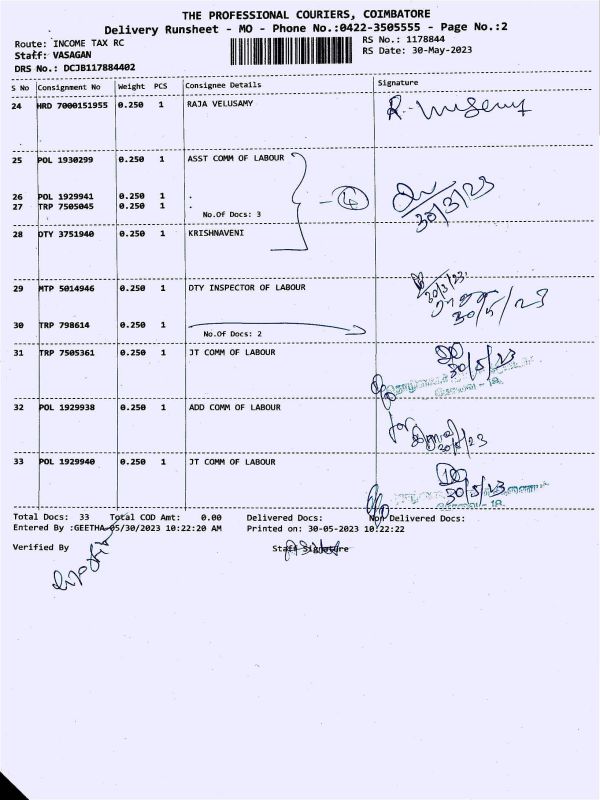 THE PROFESSIONAL COURIERS, COIMBATORE
Delivery Runsheet - MO - Phone No.:0422-3505555 - Page No.:2
Route: INCOME TAX RC
RS No.: 1178844
Staff: VASAGAN
RS Date: 30-May-2023
DRS No.: DCJB117884402
S No Consignment No Weight PCS Consignee Details Signature
24 HRD 7000151955 0.250 1 RAJA VELUSAMY
25 POL 1930299 0.250 1 ASST COMM OF LABOUR
26 POL 1929941 0.250 1 .
27 TRP 7505045 0.250 1 .
No.Of Docs: 3
30/3/23
28 DTY 3751940 0.250 1 KRISHNAVENI
29 MTP 5014946 0.250 1 DTY INSPECTOR OF LABOUR
30/3/23.
30/5/23
30 TRP 798614 0.250 1
No.Of Docs: 2
31 TRP 7505361 0.250 1 JT COMM OF LABOUR
30/5/23
32 POL 1929938 0.250 1 ADD COMM OF LABOUR
for
30/5/23
33 POL 1929940 0.250 1 JT COMM OF LABOUR
30/5/23
Total Docs: 33 Total COD Amt: 0.00 Delivered Docs: Non Delivered Docs:
Entered By :GEETHA-05/30/2023 10:22:20 AM Printed on: 30-05-2023 10:22:22
Verified By Staff Signature